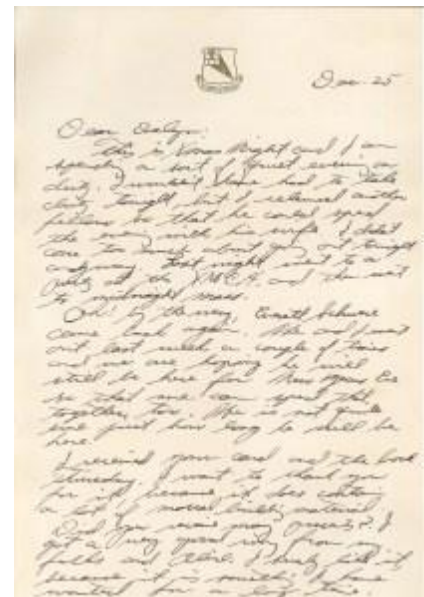 Dec. 25
Dear Evelyn:
This is Xmas Night and I am
spending a sort of quiet evening on
duty. I wouldn't have had to take
duty tonight but I relieved another
fellow so that he could spend
the evening with his wife. I didn't
care too much about going out tonight
anyway. Last night went to a
party at the Y.M.C.A. and then went
to midnight mass.
Oh! by the way,
came back again. He and I went
out last week a couple of times
and we are hoping he will
still be here for New Years Eve
so that we can spend that
together, too. He is not quite
sure just how long he will be
here.
I received your card and the book
Thursday. I want to thank you
for it because it does contain
a lot of morale building material.
Did you receive many presents? I
got a very good from my
folks and I really
because it is something I have
wanted for a long time.